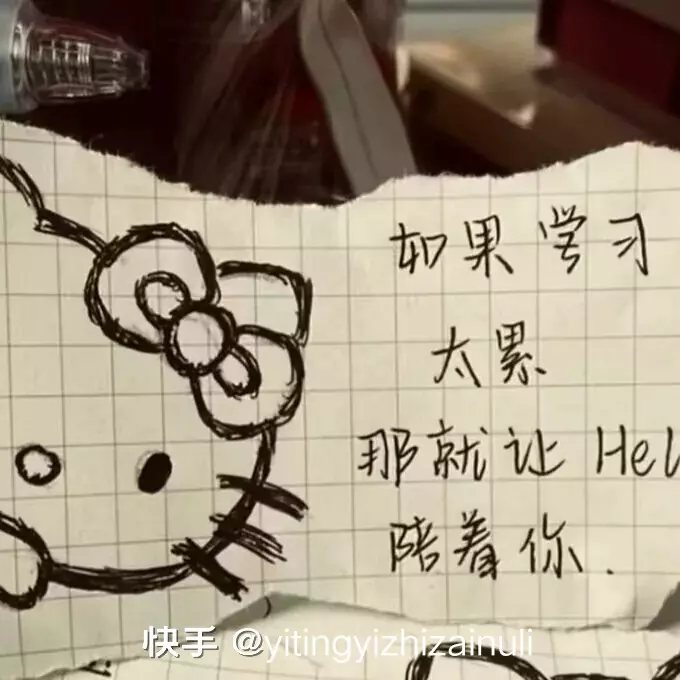 如果学习
太累
那就让 Hel
陪着你.
快手 @yitingyizhizainuli